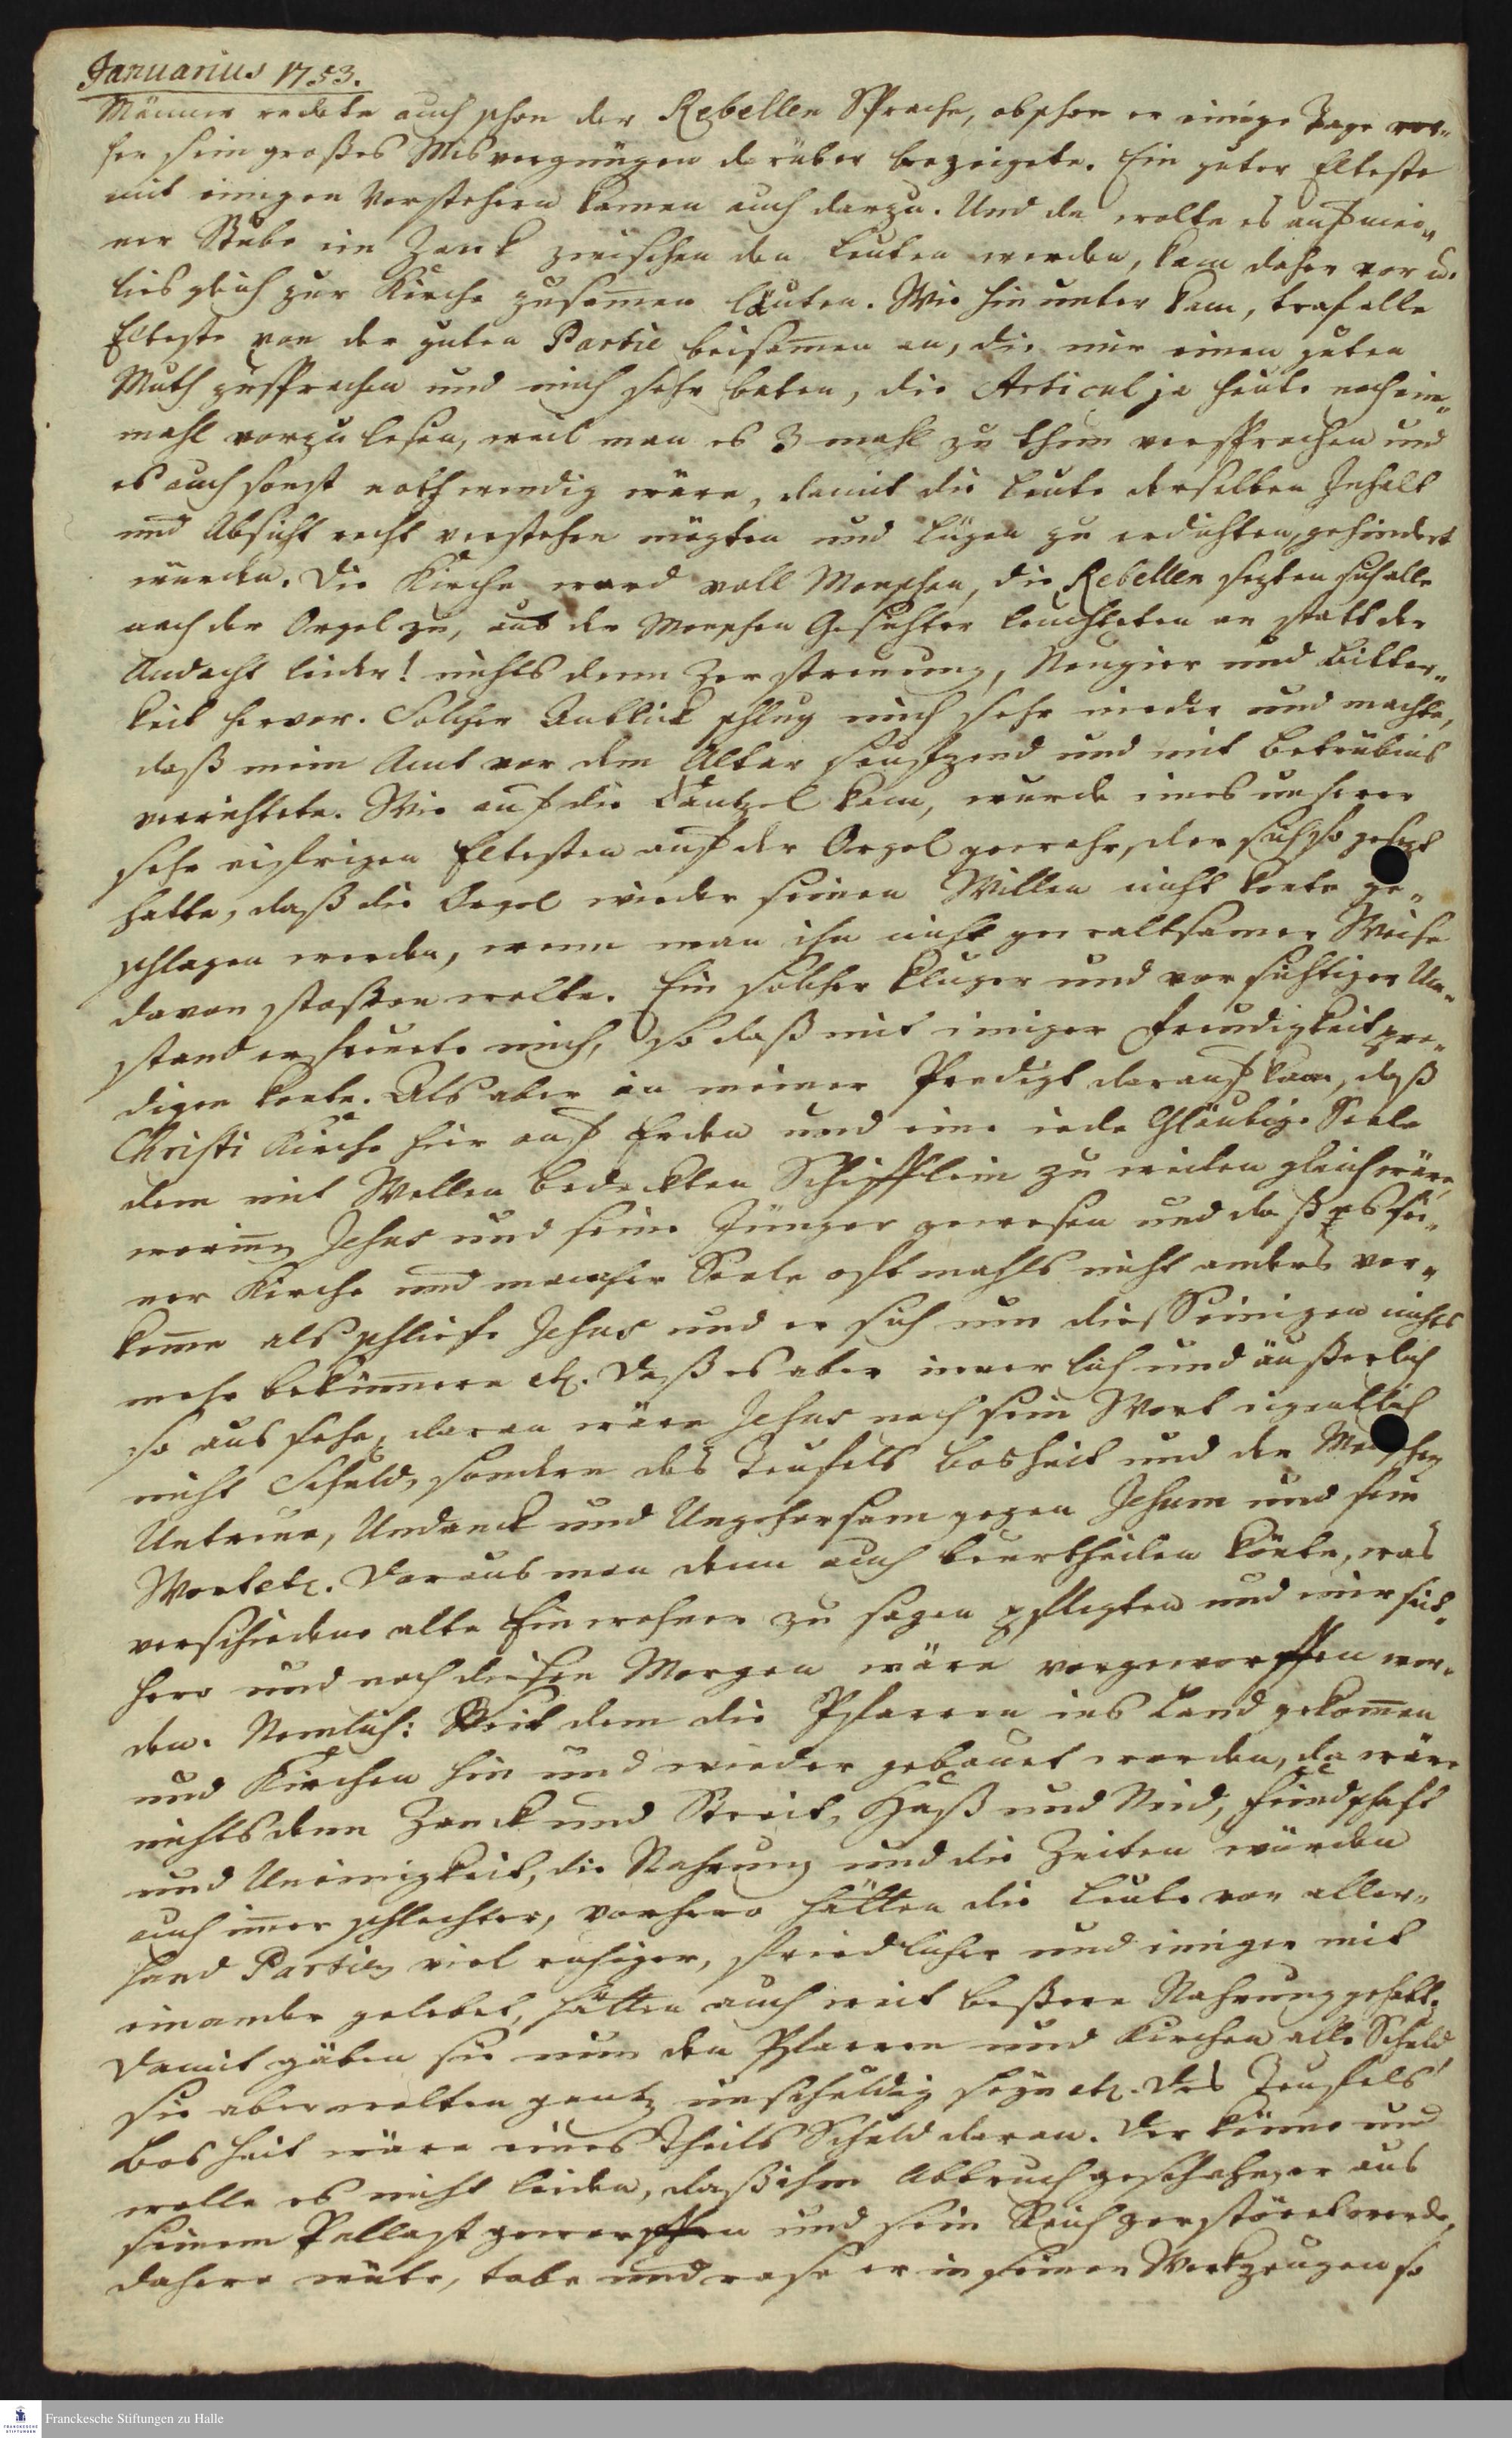 Januarius 1753.
Männer redete auch schon der Rebellen Sprache, obschon er einige Tage vor-
her sein großes Misvergnügen darüber bezeigete. Ein guter Elteste
mit einigen Vorstehern kamen auch darzu. Und da wolte es auf mei-
ner Stube ein Zank zwischen den Leuten werden, kam daher vor u.
lies gleich zur Kirche zusam̅en läuten. Wie hin unter kam, traf alle
Elteste von der guten Partie beisam̅en an, die mir einen guten
Muth zusprachen und mich sehr baten, die Articul ja heute noch ein-
mahl vorzu lesen, weil man es 3 mahl zu thun versprochen und
es auch sonst nothwendig wäre, damit die Leute derselben Inhalt
und Absicht recht verstehen mögten und Lügen zu erdichten, gehindert
würden. Die Kirche ward voll Menschen, die Rebellen sezten sich alle
nach der Orgel zu, aus der Menschen Gesichter leuchteten an statt der
Andacht leider! nichts denn Zerstreuung, Neugier und Bitter-
keit hervor. Solcher Anblick schlug mich sehr nieder und machte,
daß mein Amt vor dem Altar seufzend und mit Betrübnis
verrichtete. Wie auf die Cantzel kam, wurde eines unserer
sehr eifrigen Eltesten auf der Orgel gewahr, der sich so gesezt
hatte, daß die Orgel wieder seinen Willen nicht konte ge-
schlagen werden, wenn man ihn nicht gewaltsamer Weise
davon stoßen wolte. Ein solcher kluger und vorsichtiger Um-
stand erfreuete mich, so daß mit einiger Freudigkeit pre-
digen konte. Als aber in meiner Predigt darauf kam, daß
Christi Kirche hier auf Erden und eine iede Gläubige Seele
dem mit Wellen bedeckten Schifflein zu weilen gleich wäre,
worin̅ Jesus und seine Jünger gewesen und daß es sei-
ner Kirche und mancher Seele oftmahls nicht anders vor-
kom̅e als schliefe Jesus und er sich um die Seinigen nichts
mehr beküm̅ere etc. Daß es aber innerlich und äußerlich
so aus sehe, daran wäre Jesus noch sein Wort eigentlich
nicht Schuld, sondern des Teufels Bosheit und der Menschen
Untreue, Undanck und Ungehorsam gegen Jesum und sein
Wort etc. Daraus man denn auch beurtheilen könte, was
verschiedene alte Einwohner zu sagen pflegten und mir seit-
hero und noch diesen Morgen wäre vorgeworffen wor-
den. Nemlich: Seit dem die Pfarren ins Land gekom̅en
und Kirchen hin und wieder gebauet worden, da wäre
nichts denn Zanck und Streit, Haß und Neid, Feindschaft
und Uneinigkeit, die Nahrung und die Zeiten würden
auch im̅er schlechter, vorhero hätten die Leute von aller-
hand Partien viel ruhiger, friedlicher und einiger mit
einander gelebet, hätten auch weit beßere Nahrung gehabt.
Damit gäben sie nun den Pfarren und Kirchen alle Schuld,
sie aber wolten gantz unschuldig seyn etc. Des Teufels
Bosheit wäre eines Theils Schuld daran. Der könne und
wolle es nicht leiden, daß ihm Abbruch geschehe, er aus
seinem Pallast geworffen und sein Reich zerstöret werde,
dahero wüte, tobe und rase er in seinen Werkzeugen so
Franckesche Stiftungen zu Halle